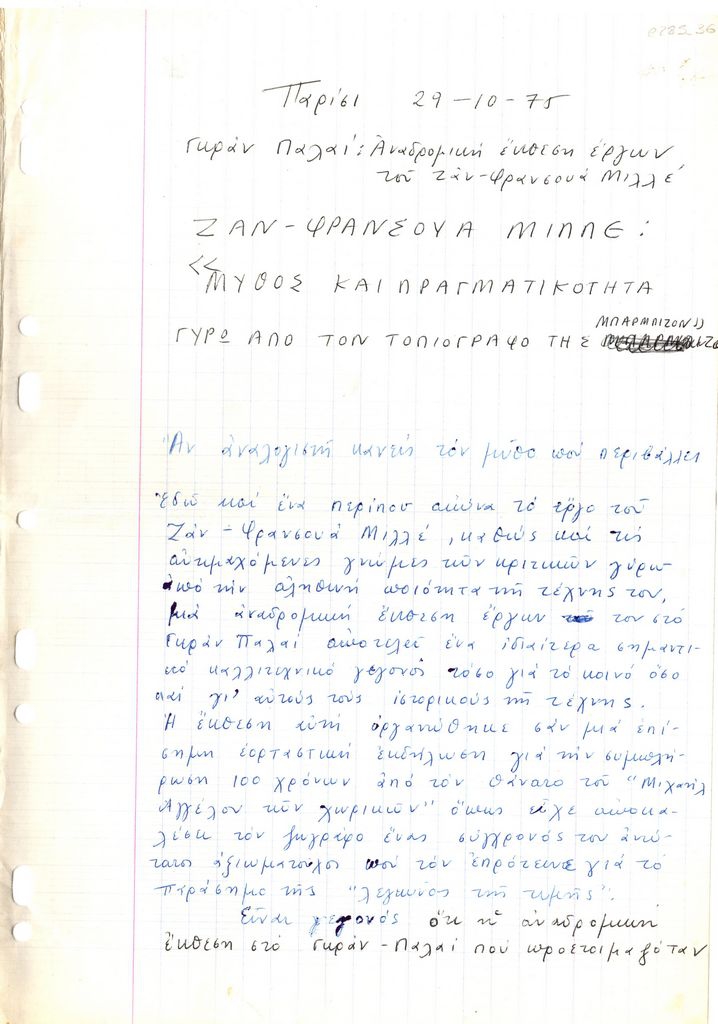 Παρίσι 29-10-75
Γκράν Παλαί: Ἀναδρομική ἔκθεση ἔργων
τοῦ Ζάν-Φρανσουά Μιλλέ
ΖΑΝ-ΦΡΑΝΣΟΥΑ ΜΙΛΛΕ:
«ΜΥΘΟΣ ΚΑΙ ΠΡΑΓΜΑΤΙΚΟΤΗΤΑ
ΜΠΑΡΜΠΙΖΟΝ»
ΓΥΡΩ ΑΠΟ ΤΟΝ ΤΟΠΙΟΓΡΑΦΟ ΤΗΣ
Ἄν ἀναλογιστῆ κανείς τόν μῦθο πού περιβάλλει
ἐδῶ καί ἕνα περίπου αἰώνα τό ἔργο τοῦ
Ζάν-Φρανσουά Μιλλέ, καθώς καί τίς
ἀντιμαχόμενες γνῶμες τῶν κριτικῶν γύρω
ἀπό τήν ἀληθινή ποιότητα τῆς τέχνης του,
μιά ἀναδρομική ἔκθεση ἔργων του στό
Γκράν Παλαί ἀποτελεῖ ἕνα ἰδιαίτερα σημαντι-
κό καλλιτεχνικό γεγονός τόσο γιά τό κοινό ὅσο
καί γι' αὐτούς τούς ἱστορικούς τῆς τέχνης.
Ἡ ἔκθεση αὐτή ὀργανώθηκε σάν μιά ἐπί-
σημη ἑορταστική ἐκδήλωση γιά τήν συμπλή-
ρωση 100 χρόνων ἀπό τόν θάνατο τοῦ "Μιχαήλ
Ἀγγέλου τῶν χωρικῶν" ὅπως εἶχε ἀποκα-
λέσει τόν ζωγράφο ἕνας σύγχρονός του ἀνώ-
τατος ἀξιωματοῦχος πού τόν ἐπρότεινε γιά τό
παράσημο τῆς "λεγεῶνος τῆς τιμῆς".
Εἶναι γεγονός ὅτι ἡ ἀναδρομική
ἔκθεση στό Γκράν-Παλαί πού προετοιμαζόταν